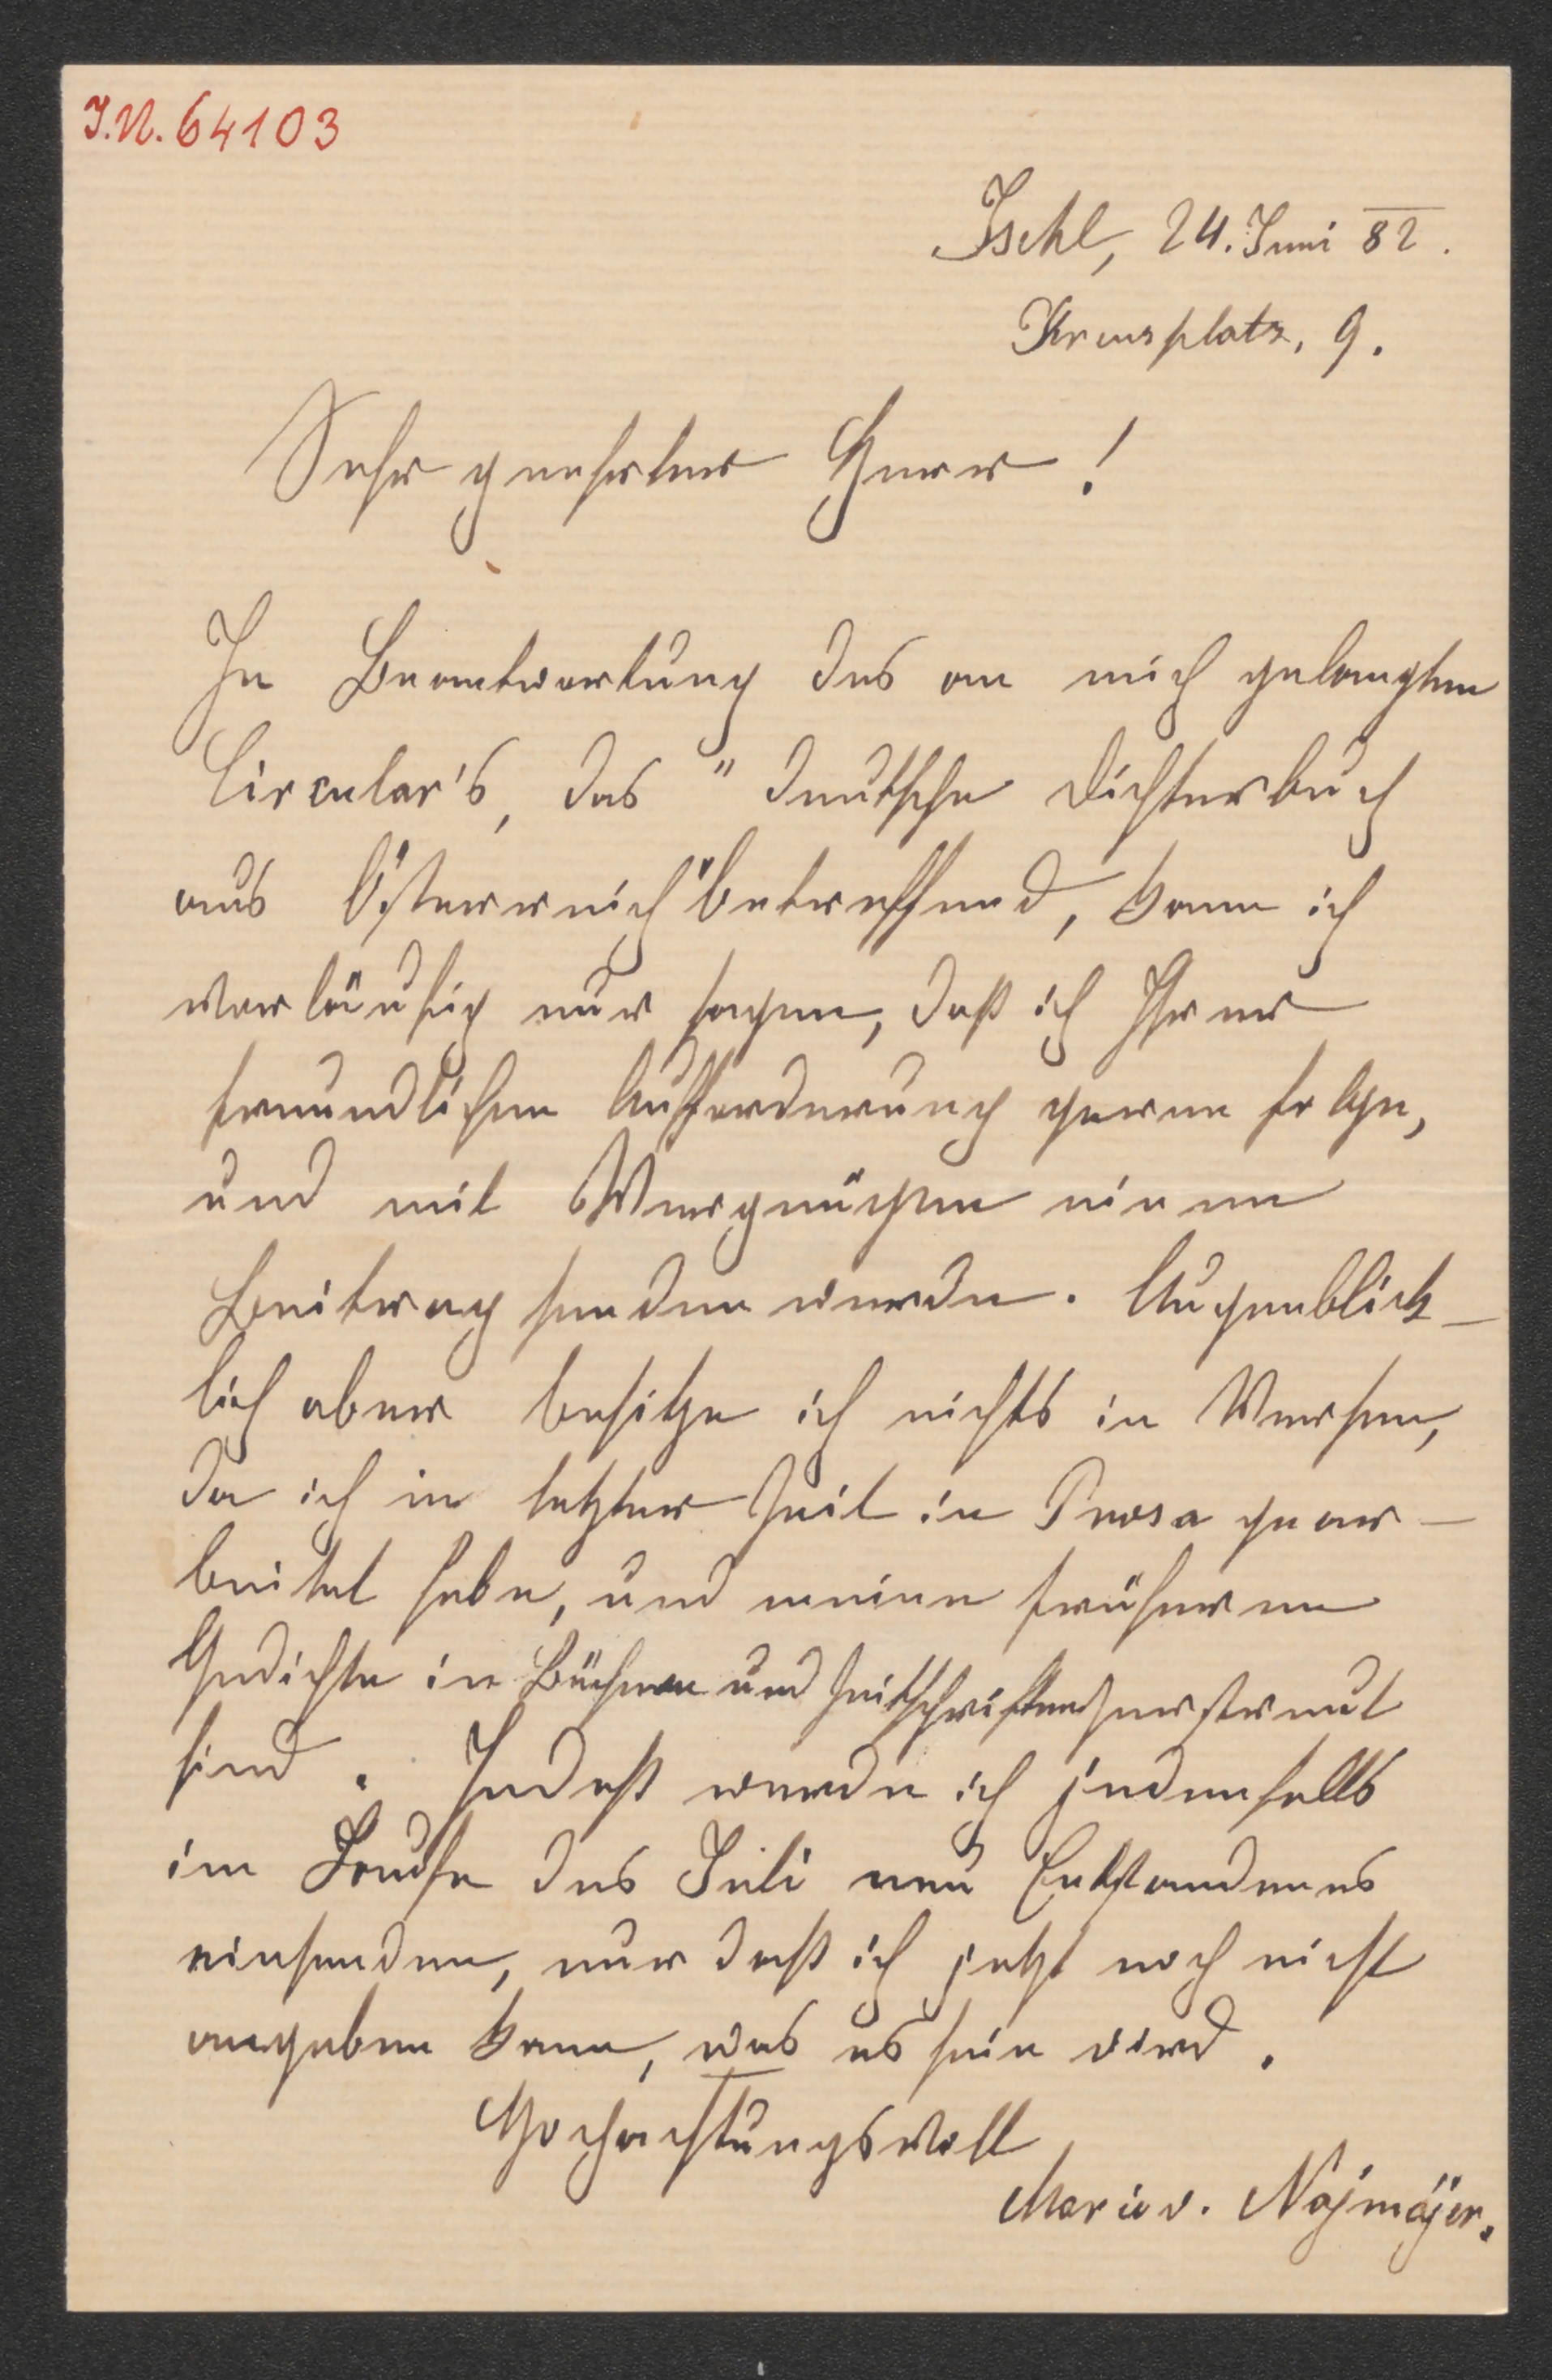 I.N. 64103
Ischl, 24. Juni 82.
Kreuzplatz, 9.
Sehr geehrter Herr!
In Beantwortung des an mich gelangten
Circular's, das "deutsche Dichterbuch
aus Österreich" betreffend, kann ich
vorläufig nur sagen, daß ich Ihrer
freundlichen Aufforderung gerne folge,
und mit Vergnügen einen
Beitrag senden werde. Augenblick-
lich aber besitze ich nichts in Versen,
da ich in letzter Zeit in Prosa gear-
beitet habe, und meine früheren
Gedichte in Büchern und Zeitschriften zerstreut
sind. Indeß werde ich jedenfalls
im Laufe des Juli neu Entstandenes
einsenden, nur daß ich jetzt noch nicht
angeben kann, was es sein wird.
Hochachtungsvoll
Marie v. Najmájer.